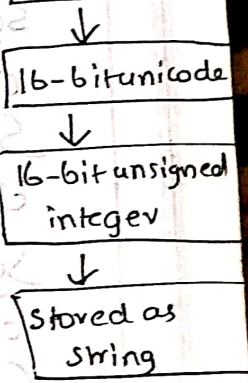 16-bitunicode
16-bit unsigned
integer
Stored as
string